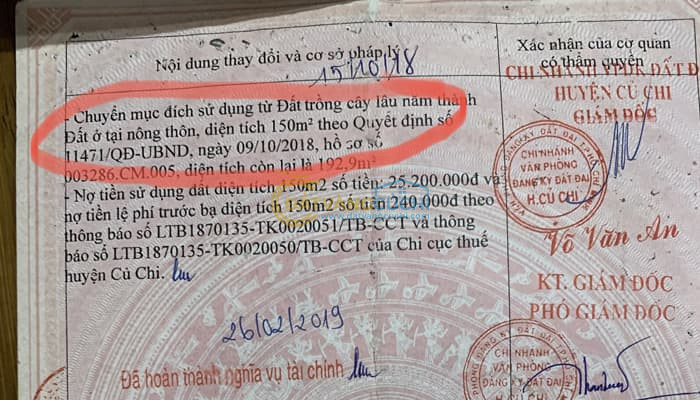 Nội dung thay đổi và cơ sở pháp lý
15/10/18
Xác nhận của cơ quan
có thẩm quyền
- Chuyển mục đích sử dụng từ Đất trồng cây lâu năm thành
Đất ở tại nông thôn, diện tích 150m² theo Quyết định số
11471/QĐ-UBND, ngày 09/10/2018, hồ sơ số
003286.CM.005, diện tích còn lại là 192,9m²
- Nợ tiền sử dụng đất diện tích 150m2 số tiền: 25.200.000đ và
nợ tiền lệ phí trước bạ diện tích 150m2 số tiền 240.000đ theo
thông báo số LTB1870135-TK0020051/TB-CCT và thông
báo số LTB1870135-TK0020050/TB-CCT của Chi cục thuế
huyện Củ Chi.
CHI NHÁNH VPĐK ĐẤT Đ
HUYỆN CỦ CHI
GIÁM ĐỐC
CHI NHÁNH
VĂN PHÒNG
ĐĂNG KÝ ĐẤT ĐAI
H.CỦ CHI
Võ Văn An
KT. GIÁM ĐỐC
PHÓ GIÁM ĐỐC
26/02/2019
Đã hoàn thành nghĩa vụ tài chính
CHI NHÁNH
VĂN PHÒNG
ĐĂNG KÝ ĐẤT ĐAI